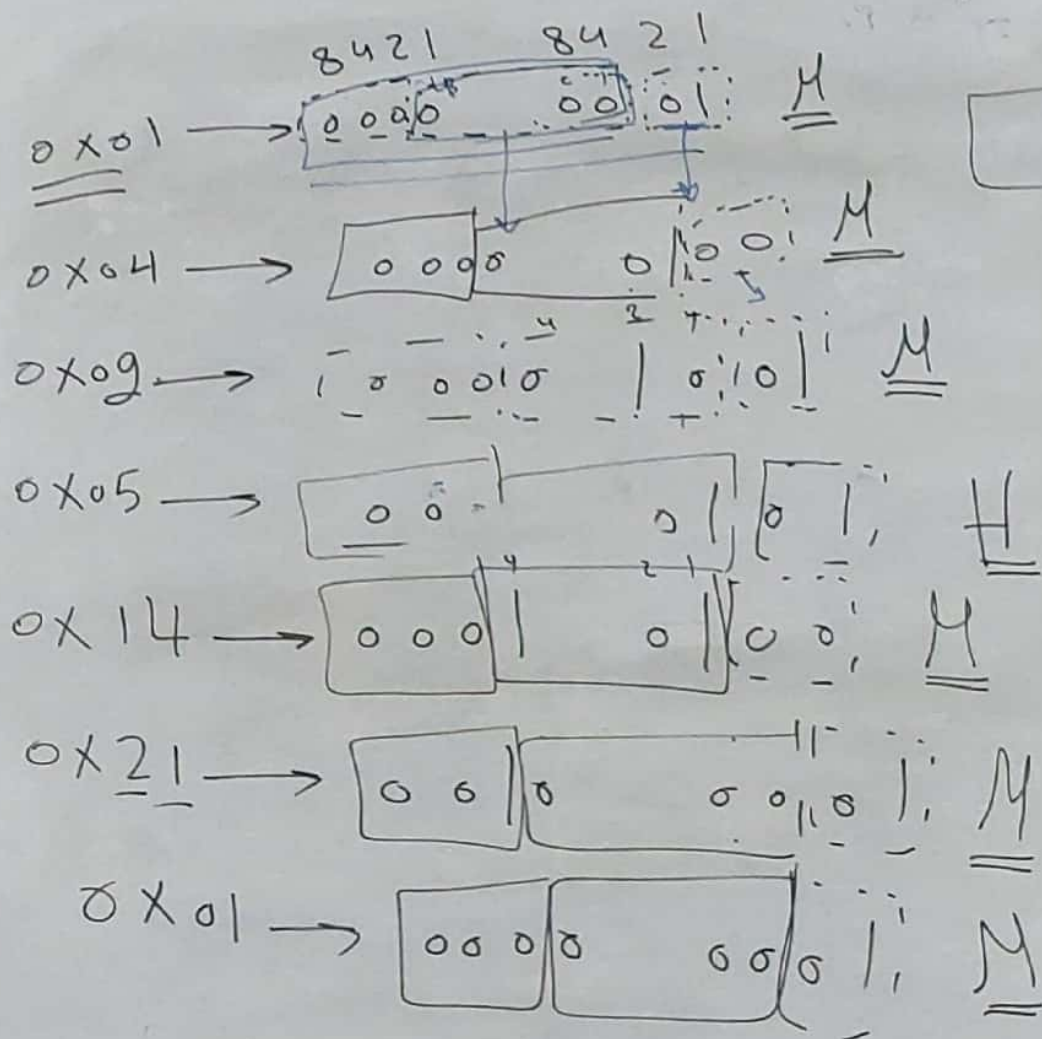 8421 84 21
0x01 → 0000 00 01 M
0x04 → 0000 0 1 00 M
0x09 → 0000 1 0 01 M
0x05 → 00 01 01 H
4 2 1
0x14 → 0001 01 00 M
0x21 → 0010 00 01 M
0x01 → 0000 00 01 M